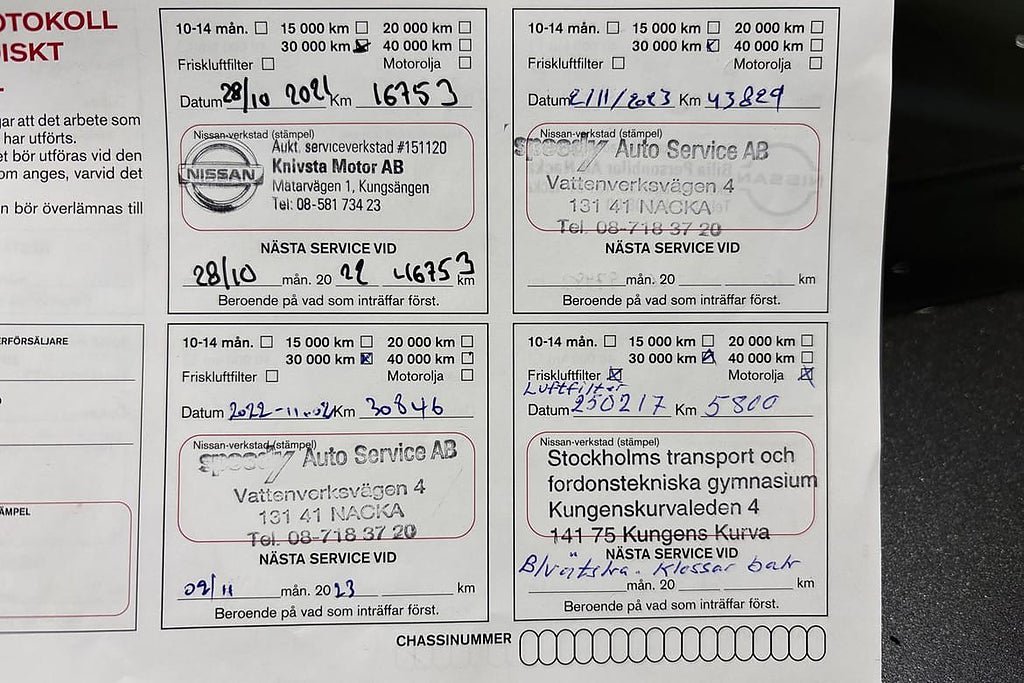 OTOKOLL
ISKT
gar att det arbete som
har utförts.
et bör utföras vid den
om anges, varvid det
n bör överlämnas till
ERFÖRSÄLJARE
ÄMPEL
10-14 mån. 15 000 km 20 000 km
30 000 km 40 000 km
Friskluftfilter Motorolja
Datum 28/10 2021 Km 16753
Nissan-verkstad (stämpel)
NISSAN
Aukt. serviceverkstad #151120
Knivsta Motor AB
Mätarvägen 1, Kungsängen
Tel: 08-581 734 23
NÄSTA SERVICE VID
28/10 mån. 20 22 46753 km
Beroende på vad som inträffar först.
10-14 mån. 15 000 km 20 000 km
30 000 km 40 000 km
Friskluftfilter Motorolja
Datum 2/11/2023 Km 43829
Nissan-verkstad (stämpel)
speedy Auto Service AB
Vattenverksvägen 4
131 41 NACKA
Tel. 08-718 37 20
NÄSTA SERVICE VID
mån. 20 km
Beroende på vad som inträffar först.
10-14 mån. 15 000 km 20 000 km
30 000 km 40 000 km
Friskluftfilter Motorolja
Datum 2022-11-02 Km 30846
Nissan-verkstad (stämpel)
speedy Auto Service AB
Vattenverksvägen 4
131 41 NACKA
Tel. 08-718 37 20
NÄSTA SERVICE VID
02/11 mån. 20 23 km
Beroende på vad som inträffar först.
10-14 mån. 15 000 km 20 000 km
30 000 km 40 000 km
Friskluftfilter Motorolja
Luftfilter
Datum 250217 Km 5800
Nissan-verkstad (stämpel)
Stockholms transport och
fordonstekniska gymnasium
Kungenskurvaleden 4
141 75 Kungens Kurva
NÄSTA SERVICE VID
Blvätska. Klossar bak
mån. 20 km
Beroende på vad som inträffar först.
CHASSINUMMER